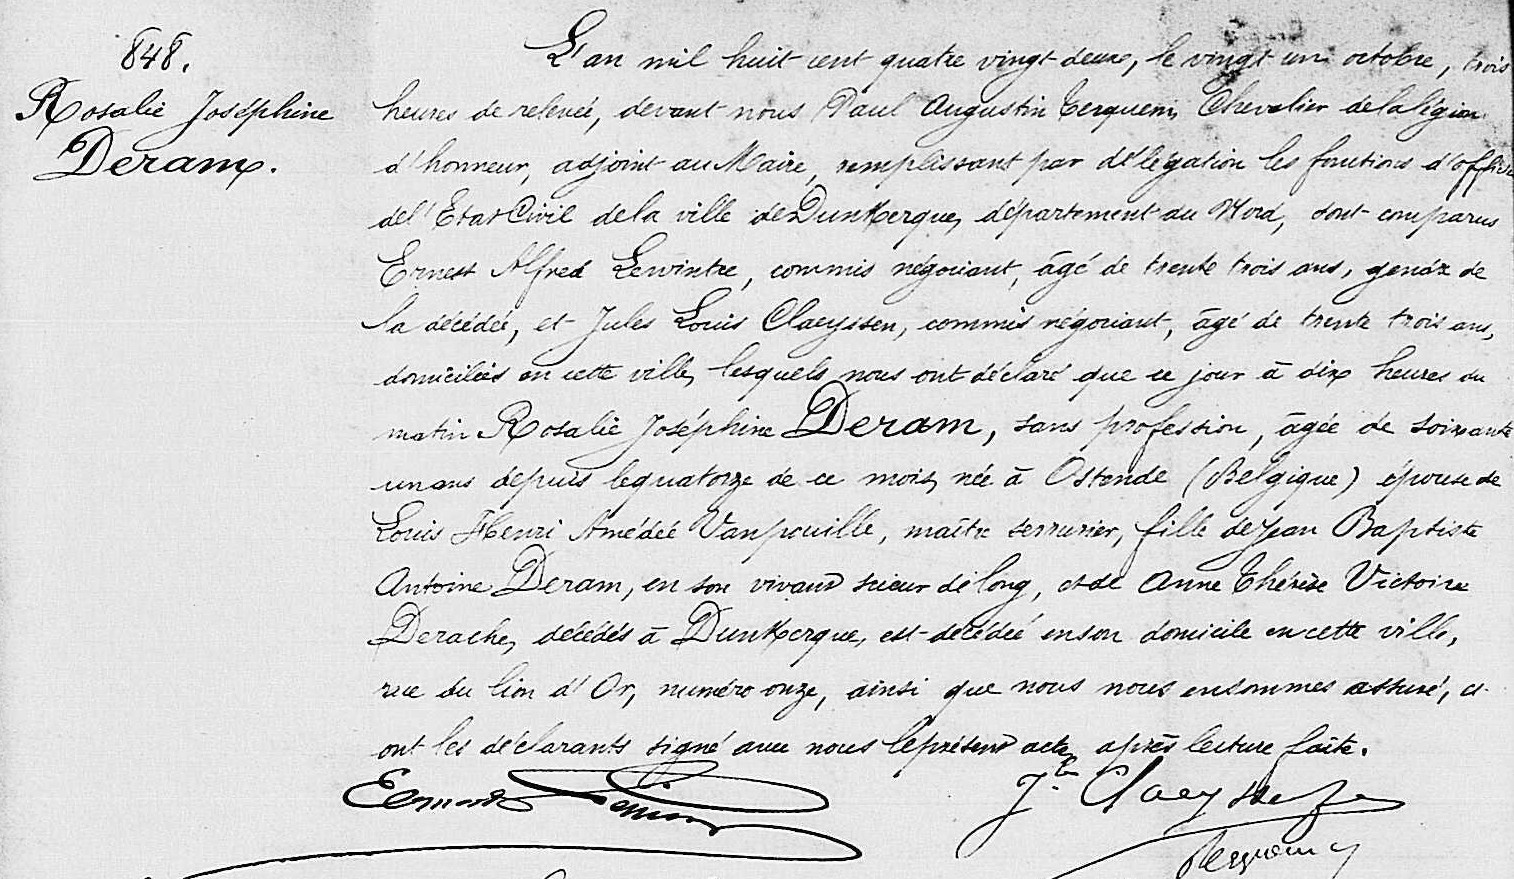 848.
Rosalie Joséphine
Deram.
L'an mil huit cent quatre vingt deux, le vingt un octobre, trois
heures de relevée, devant nous Paul Augustin Terquem, Chevalier de la légion
d'honneur, adjoint au Maire, remplissant par délégation les fonctions d'officier
de l'Etat Civil de la ville de Dunkerque, département du Nord, sont comparus
Ernest Alfred Lewintre, commis négociant, âgé de trente trois ans, gendre de
la décédée, et Jules Louis Claeyssen, commis négociant, âgé de trente trois ans,
domiciliés en cette ville, lesquels nous ont déclaré que ce jour à dix heures du
matin Rosalie Joséphine Deram, sans profession, âgée de soixante
un ans depuis le quatorze de ce mois, née à Ostende (Belgique) épouse de
Louis Henri Amédée Vanpouille, maître serrurier, fille de Jean Baptiste
Antoine Deram, en son vivant scieur de long, et de Anne Thérèse Victoire
Derache, décédés à Dunkerque, est décédée en son domicile en cette ville,
rue du lion d'Or, numéro onze, ainsi que nous nous en sommes assuré, et
ont les déclarants signé avec nous le présent acte, après lecture faite.
Ernest
J. Claeyssen
Terquem